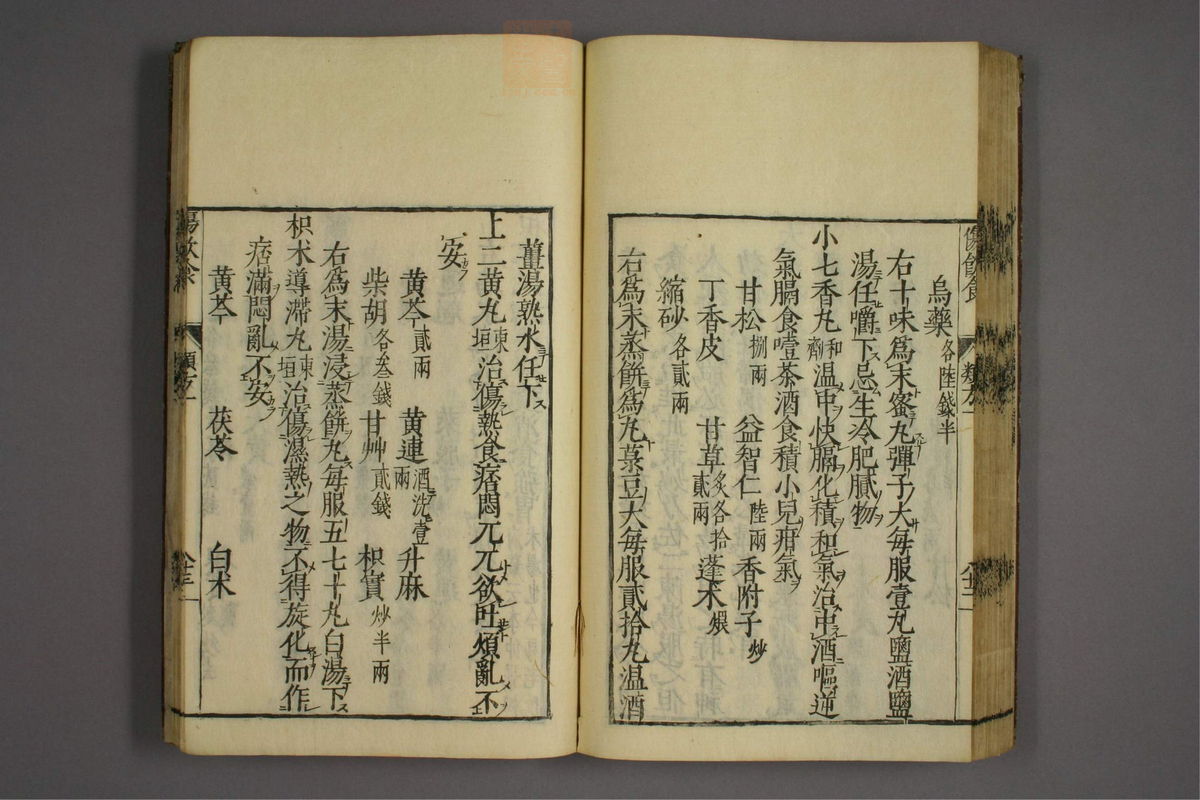 烏藥各陸錢半
右十味爲末蜜丸彈子大每服壹丸鹽酒鹽
湯任嚼下忌生冷肥膩物
小七香丸和劑温中快膈化積和氣治中酒嘔逆
氣膈食噎茶酒食積小兒疳氣
甘松捌兩 益智仁陸兩 香附子炒
丁香皮 甘草炙各拾貳兩 蓬朮煨
縮砂各貳兩
右爲末蒸餠爲丸菉豆大每服貳拾丸温酒
薑湯熟水任下
上二黄丸東垣治傷熱食痞悶兀兀欲吐煩亂不
安
黄芩貳兩 黄連酒洗壹兩 升麻
柴胡各叁錢 甘艸貳錢 枳實炒半兩
右爲末湯浸蒸餠丸每服五七十丸白湯下
枳朮導滯丸東垣治傷濕熱之物不得旋化而作
痞滿悶亂不安
黄芩 茯苓 白朮
傷飮食 類方一